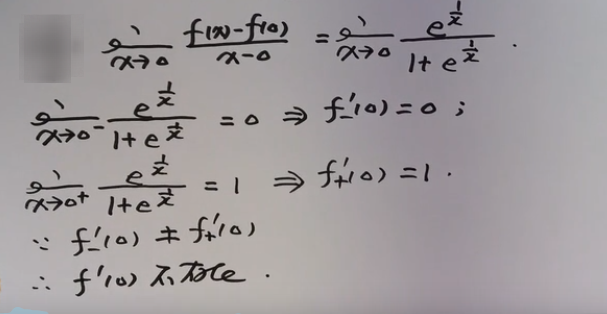 lim x→0 (f(x)-f(0))/(x-0) = lim x→0 e^(1/x)/(1+e^(1/x)) .
lim x→0⁻ e^(1/x)/(1+e^(1/x)) = 0 ⇒ f₋'(0) = 0 ;
lim x→0⁺ e^(1/x)/(1+e^(1/x)) = 1 ⇒ f₊'(0) = 1 .
∵ f₋'(0) ≠ f₊'(0)
∴ f'(0) 不存在 .